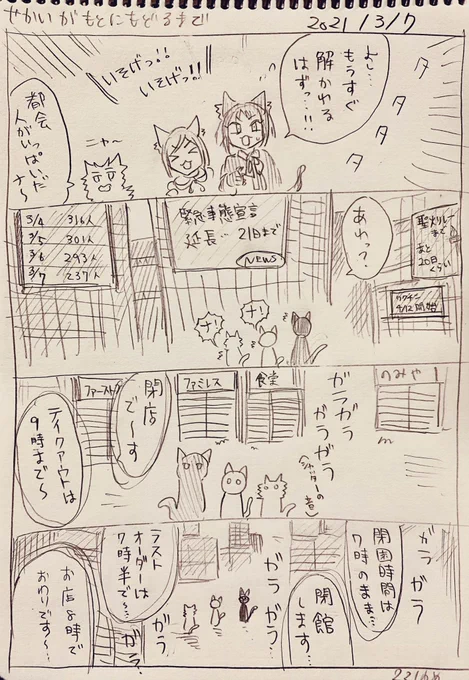 せかいがもとにもどるまで
2021/3/7
よし…
もうすぐ
解かれる
はずっ…!!
タタタタ
いそげっ!!
いそげっ!!
ニャ〜
都会
人がいっぱいだ
ナ〜
聖火リレー
まで
あと
20日
くらい
ワクチン
4/12開始
あれっ?
緊急事態宣言
延長 21日まで
NEWS
3/4 316人
3/5 301人
3/6 293人
3/7 237人
ナ!
ナ!
のみや
ガラガラ
ガラガラ
(シャッターの音)
食堂
ファミレス
ファースト
閉店
で〜す
テイクアウトは
9時まで〜
ガラガラ
開園時間は
7時のまま…
閉館
します…
ガラガラ
ラスト
オーダーは
7時半で〜…
ガラガラ
お店8時で
おわりです〜…